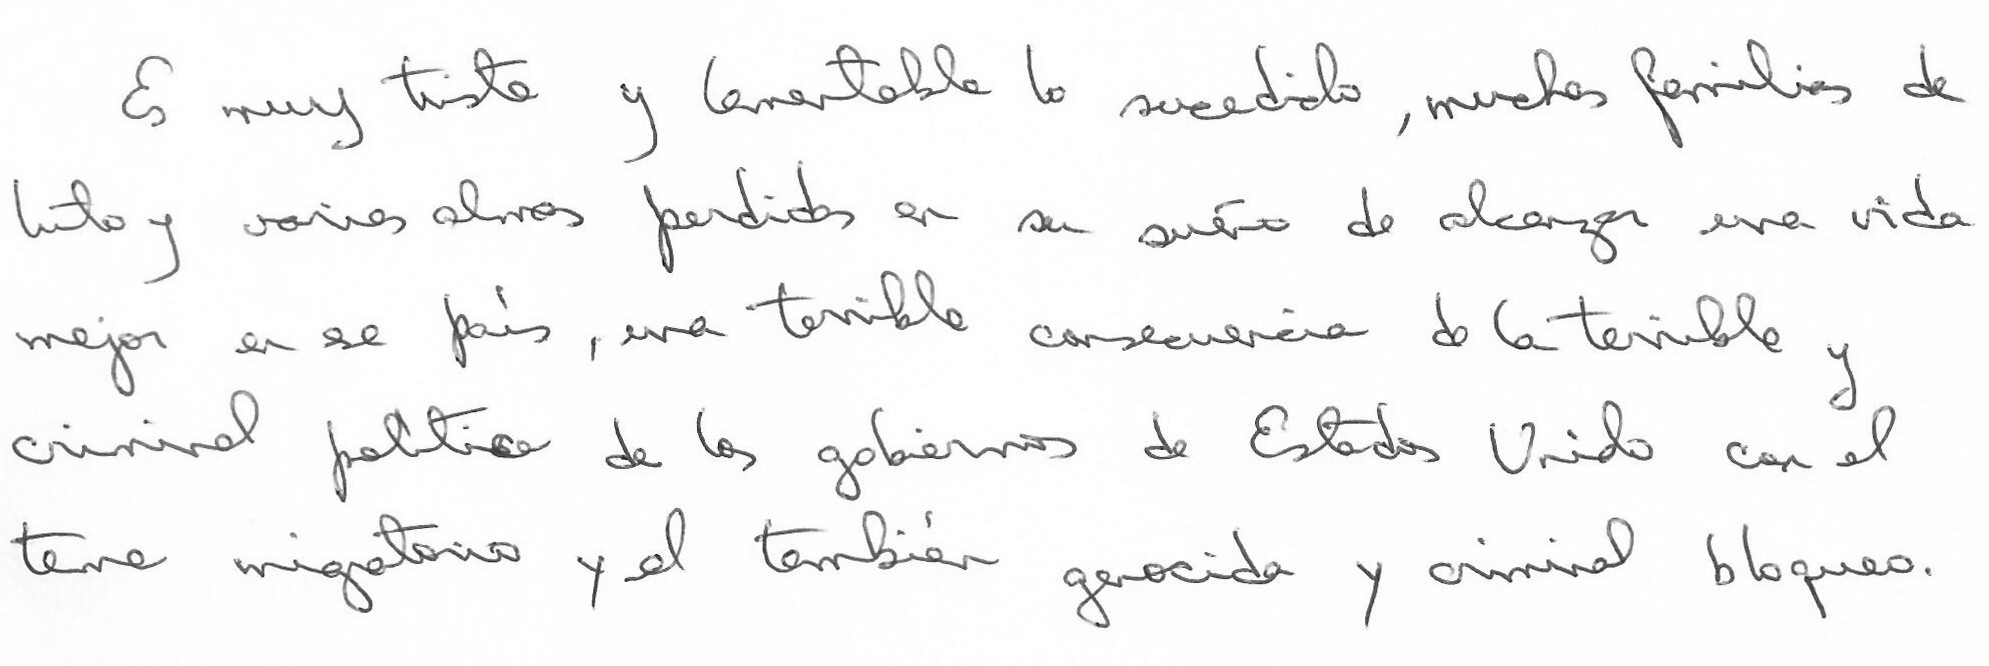 Es muy triste y lamentable lo sucedido, muchas familias de
luto y varias almas perdidas en su sueño de alcanzar una vida
mejor en se país, una terrible consecuencia de la terrible y
criminal política de los gobiernos de Estados Unido con el
tema migratorio y el también genocida y criminal bloqueo.